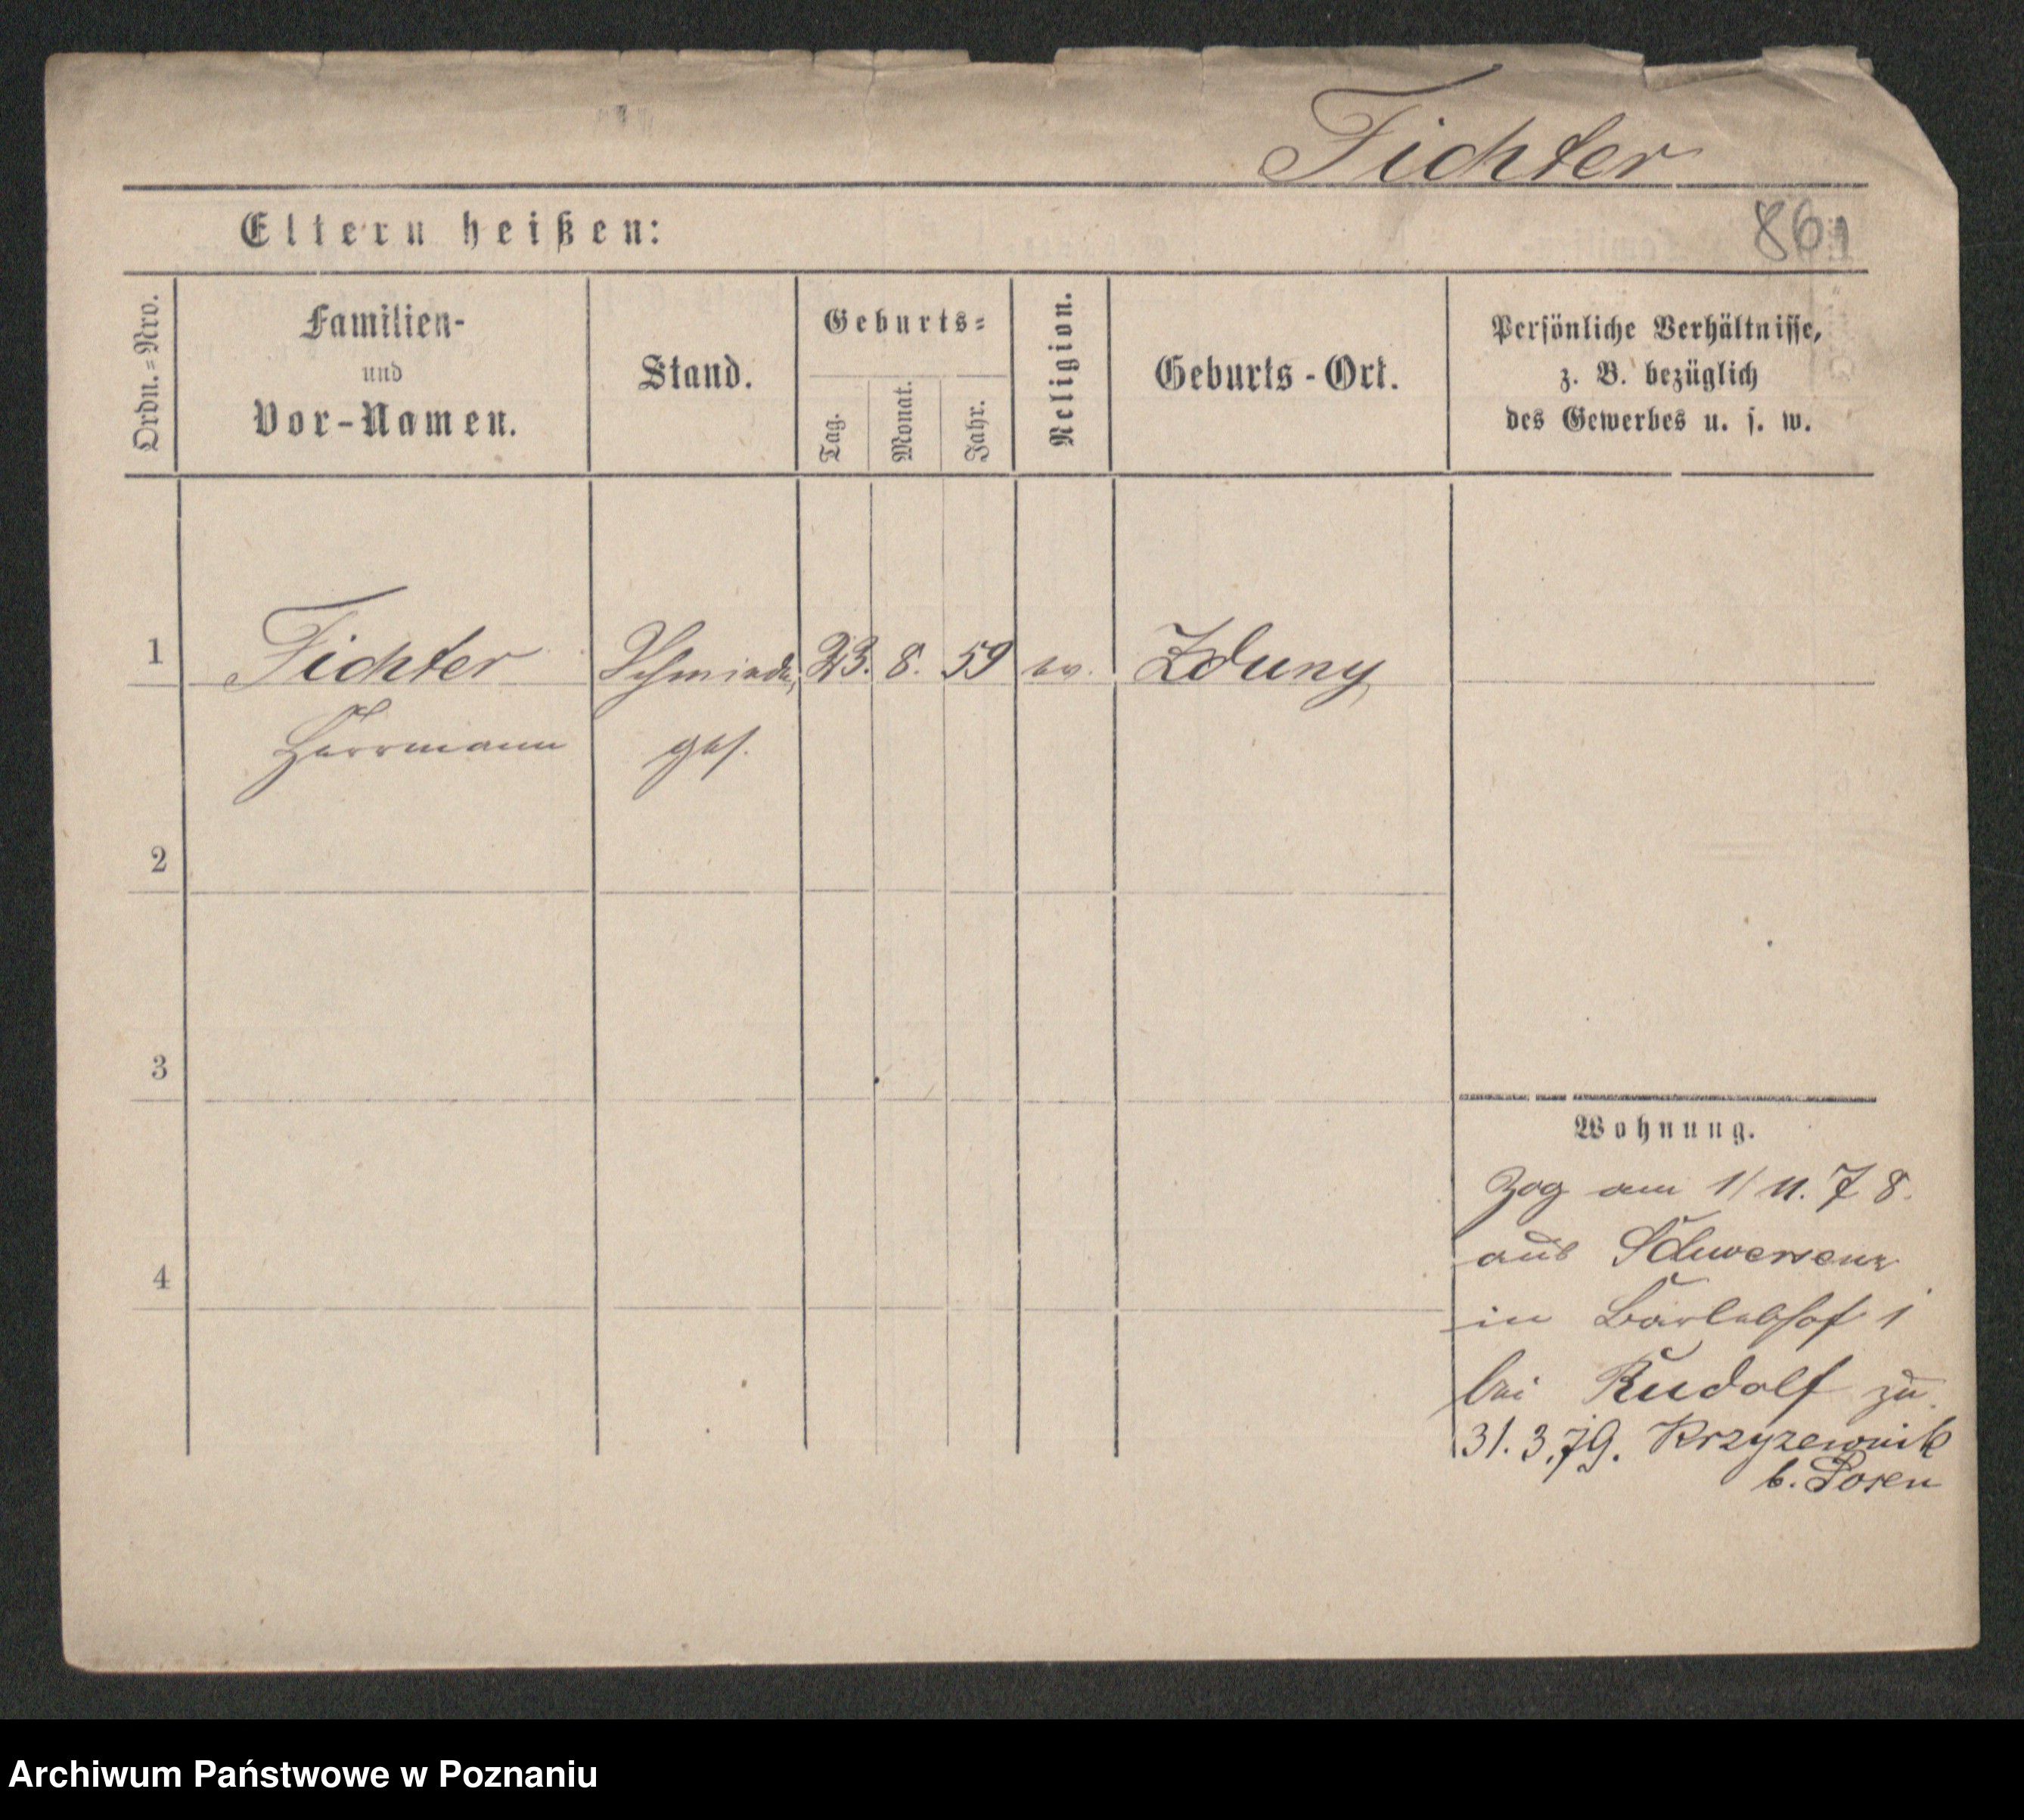 Fichter
Eltern heißen:
861
Ordn.=Nro.
Familien-
und
Vor-Namen.
Stand.
Geburts=
Tag.
Monat.
Jahr.
Religion.
Geburts-Ort.
Persönliche Verhältnisse,
z. B. bezüglich
des Gewerbes u. s. w.
1 Fichter Schmiede, 23. 8. 59 ev. Zduny
Herrmann ges.
2
3
4
Wohnung.
Zog am 1/11. 78.
aus Schwersenz
in Bartelshof 1
bei Rudolf zu.
31.3.79. Krzyzewnik
b. Posen
Archiwum Państwowe w Poznaniu